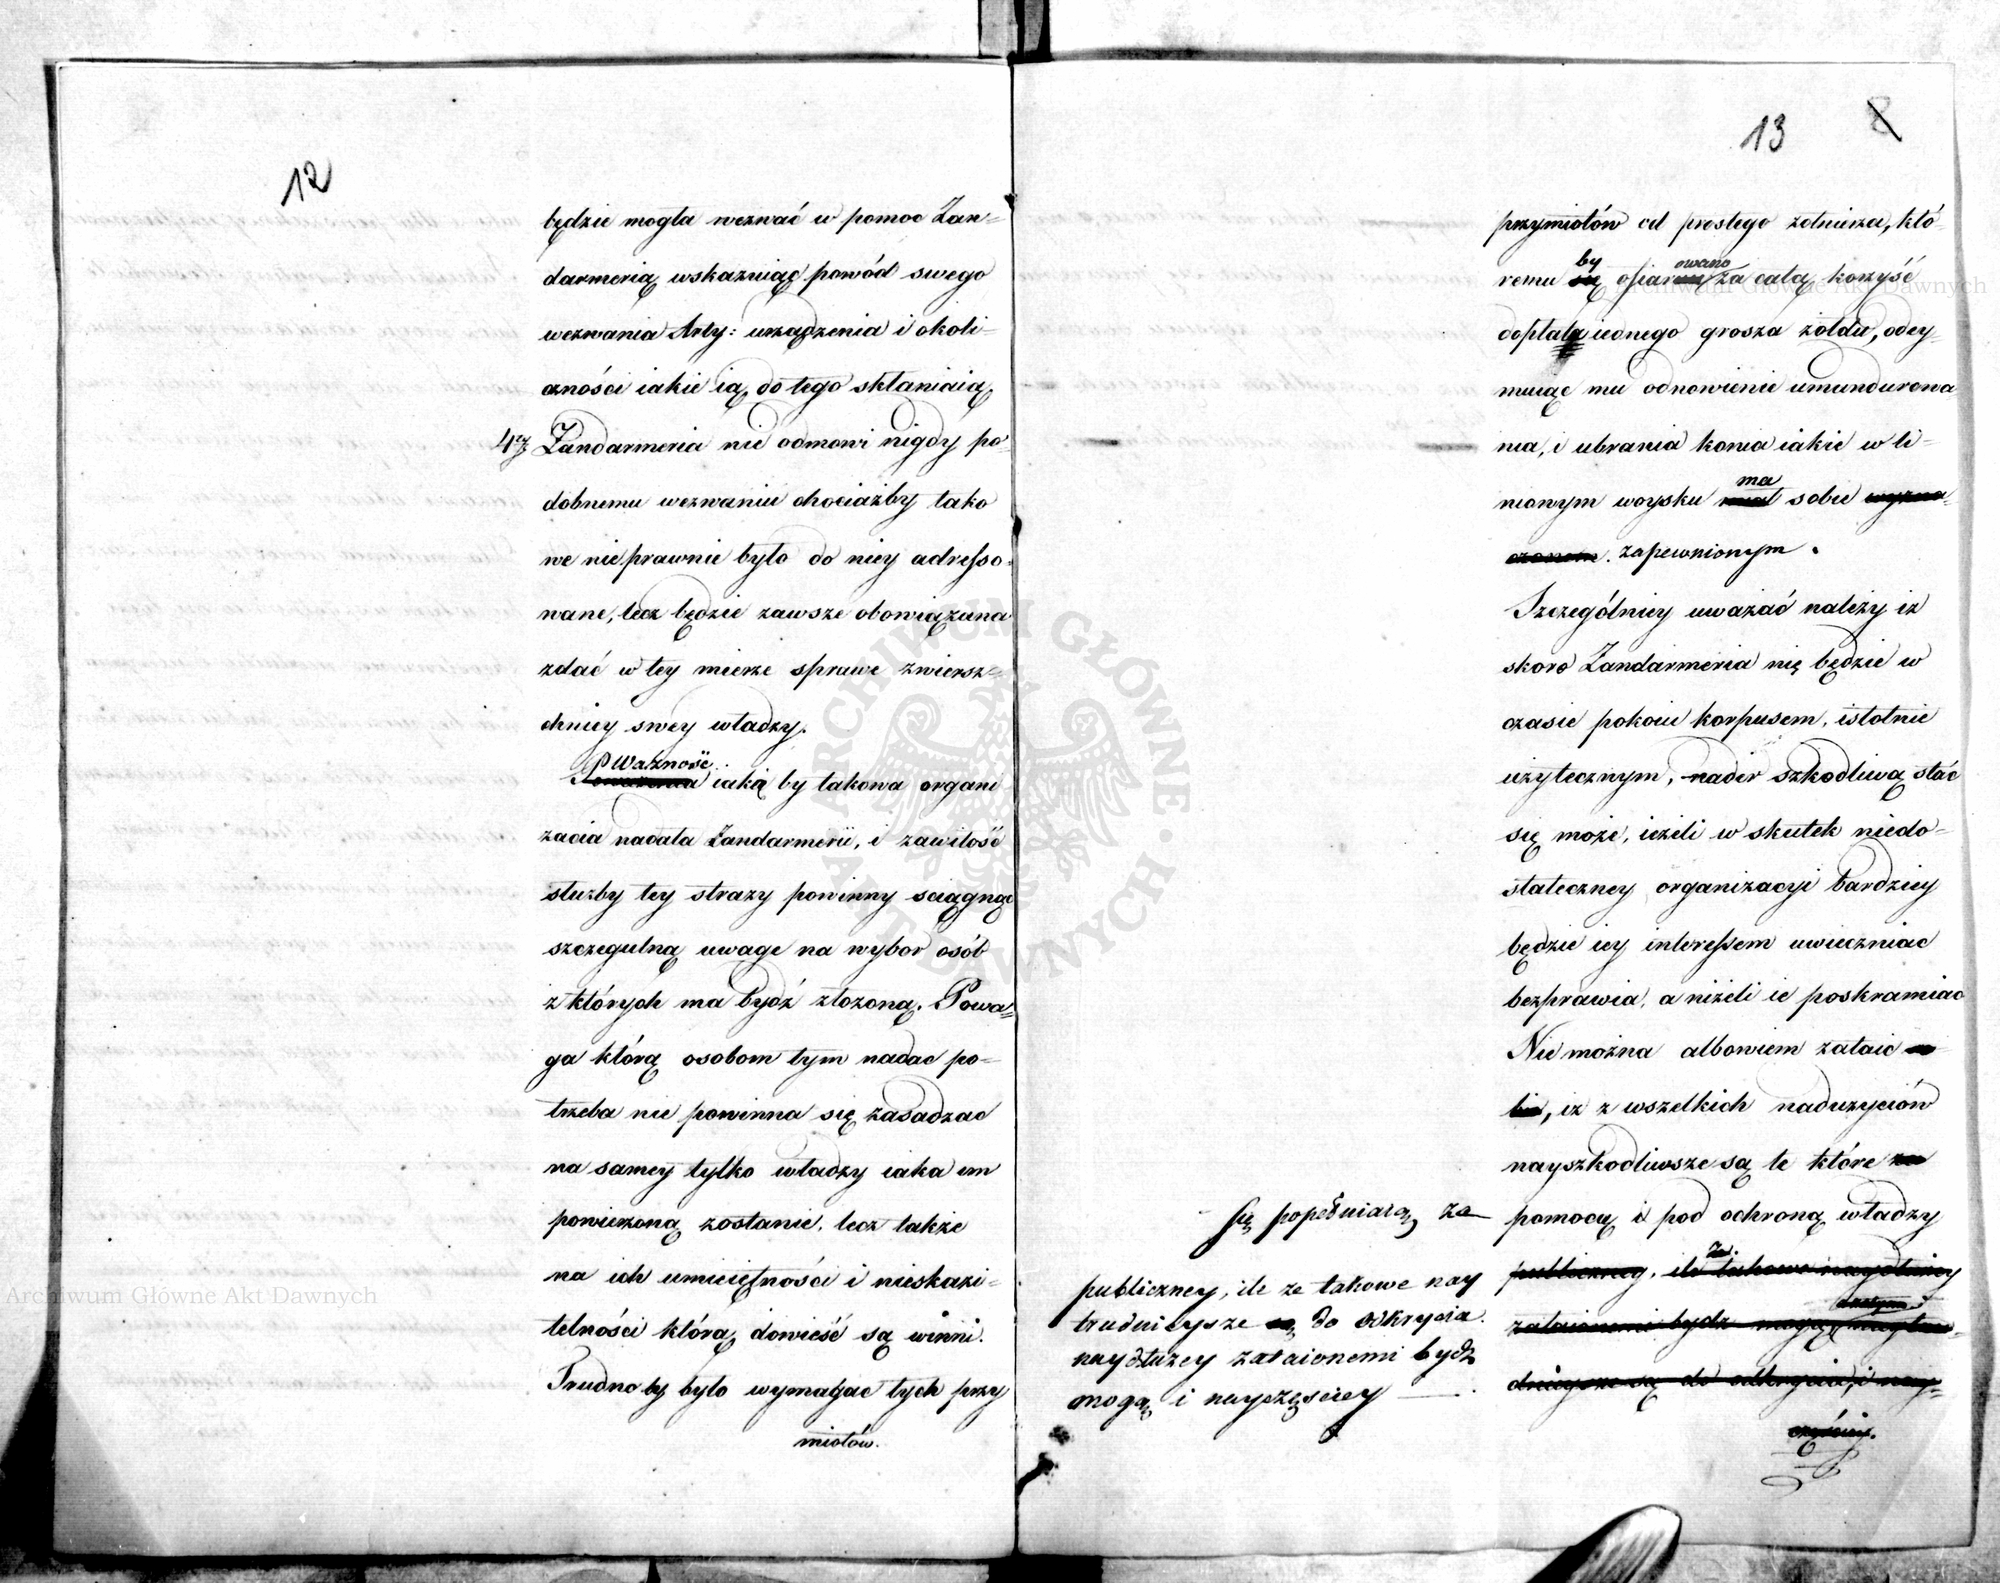 12
będzie mogła wezwać w pomoc Żan-
darmerią wskazuiąc powód swego
wezwania Arty: urządzenia i okoli-
czności iakie ią do tego skłaniaią.
4o Żandarmeria nie odmowi nigdy po-
dobnemu wezwaniu chociażby tako
we nieprawnie było do niey adresso-
wane, lecz będzie zawsze obowiązana
zdać w tey mierze sprawę zwiersz-
chniey swey władzy.
Ważność
iaką by takowa organi
zacia nadała Żandarmerii, i zawiłość
służby tey straży powinny sciągnąć
szczegulną uwagę na wybor osób
z których ma bydź złożoną. Powa-
ga którą osobom tym nadac po-
trzeba nie powinna się zasadzac
na samey tylko władzy iaka im
powierzoną zostanie, lecz także
na ich umieiętności i nieskazi-
telności którą dowieść są winni.
Trudno by było wymagac tych przy
miotów.
13
8
przymiotów od prostego żołnierza, któ-
by owano
remu się ofiaruią za całą korzyść
dopłatę iednego grosza żołdu, odey-
muiąc mu odnowienie umundurowa
nia, i ubrania konia iakie w li-
ma
niowym woysku miał sobie wyzna-
czonem. zapewnionym.
Szczególniey uważać należy iż
skoro Żandarmeria nię będzie w
czasie pokoiu korpusem, istotnie
użytecznym, nader szkodliwą stać
się może, ieżeli w skutek niedo-
stateczney organizacyi bardziey
będzie iey interessem uwieczniac
bezprawia, a niżeli ie poskramiac
Nie można albowiem zataic so-
bie, iż z wszelkich nadużyciów
nayszkodliwsze są te które za
się popełniaią za
pomocą i pod ochroną władzy
że
publiczney, ile takowe naydłużey
zataionemi bydz mogą naytru-
dnieysze są do odkrycia, i nay-
częściey.
publiczney, ile ze takowe nay
trudnieysze są do odkrycia.
naydłużey zataionemi bydz
mogą i nayczęściey
Archiwum Główne Akt Dawnych
ARCHIWUM GŁÓWNE AKT DAWNYCH
Archiwum Główne Akt Dawnych